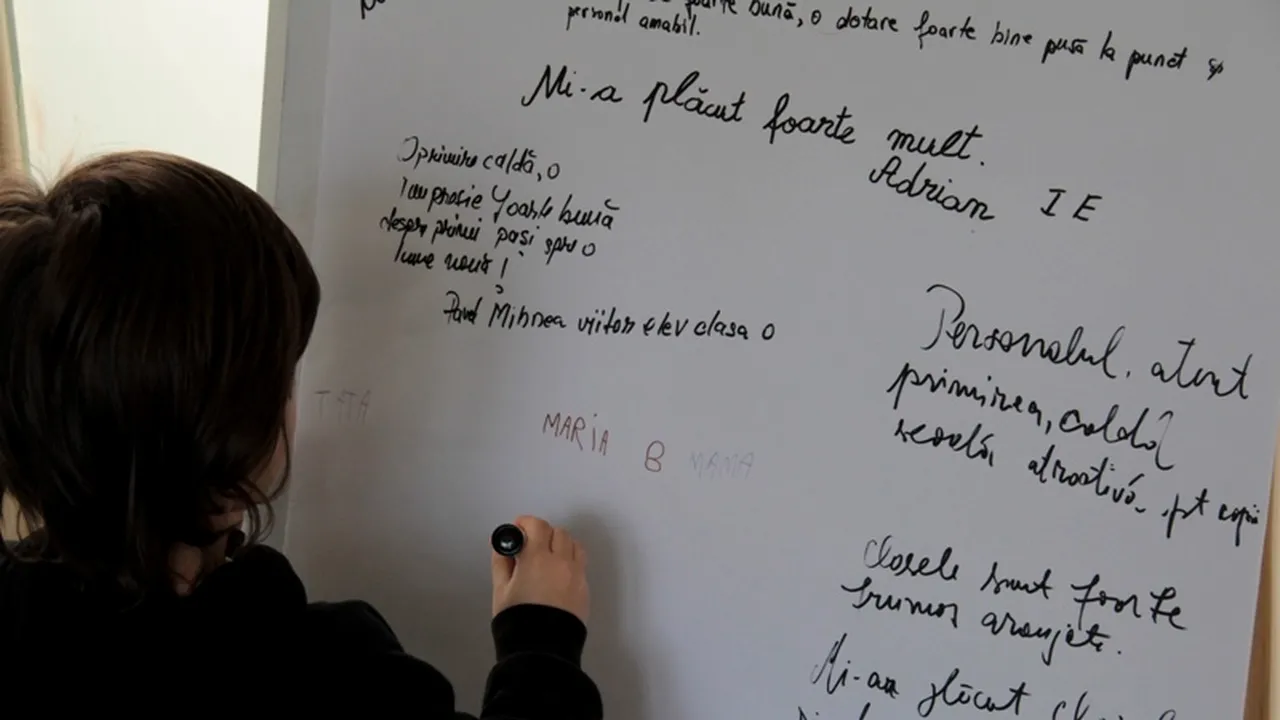 foarte bună, o dotare foarte bine pusă la punct și
personal amabil.
Mi-a plăcut foarte mult.
Adrian I E
O primire caldă, o
impresie foarte bună
despre primii pași spre o
lume nouă!
Pavel Mihnea viitor elev clasa 0
TATA
MARIA B MAMA
Personalul, atent
primirea, caldă
scoală, atractivă, pt copii
Clasele sunt foarte
frumos aranjate.
Mi-au plăcut